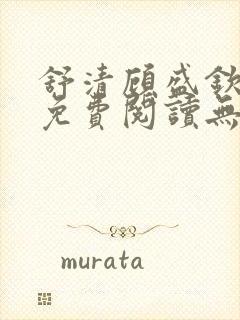 舒清顧盛欽
免費閱讀無
murata